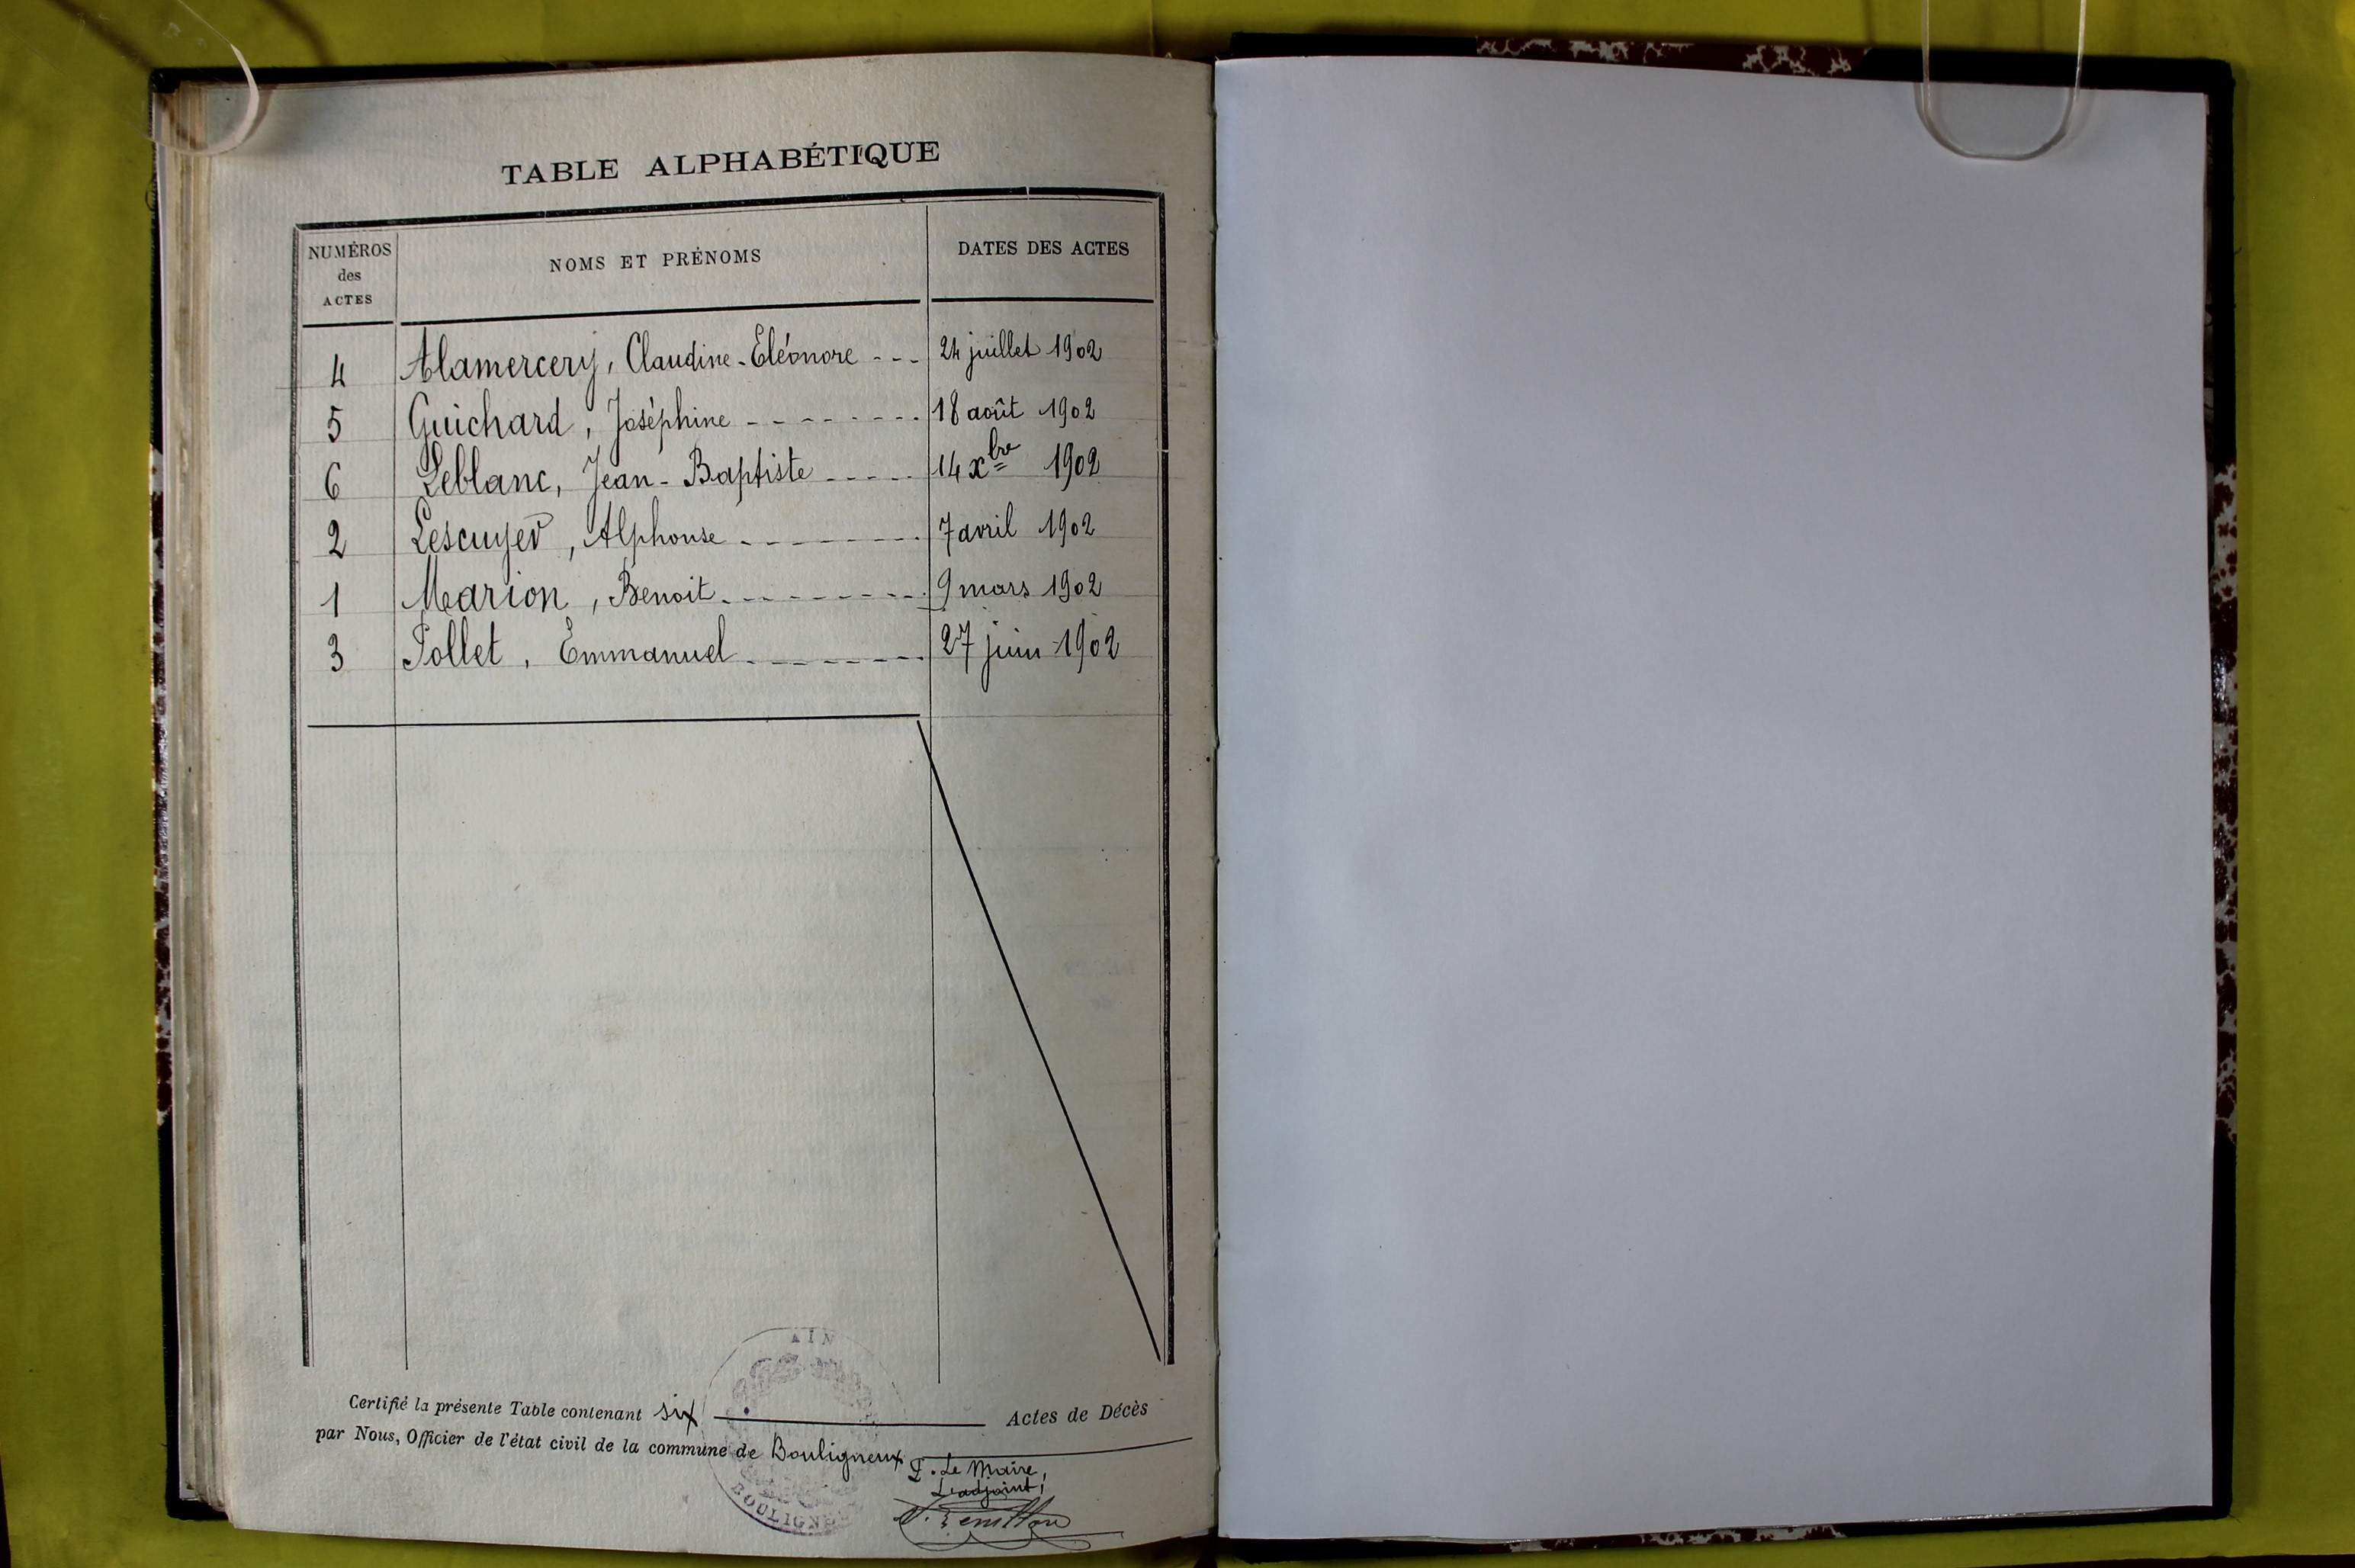 TABLE ALPHABÉTIQUE
NUMÉROS des ACTES NOMS ET PRÉNOMS DATES DES ACTES
4 Alamercery, Claudine-Eléonore --- 24 juillet 1902
5 Guichard, Joséphine -------- 18 août 1902
6 Leblanc, Jean-Baptiste ----- 14 xbre 1902
2 Lescuyer, Alphonse -------- 7 avril 1902
1 Marion, Benoit --------- 9 mars 1902
3 Pollet, Emmanuel -------- 27 juin 1902
AIN
Certifié la présente Table contenant six Actes de Décès
par Nous, Officier de l'état civil de la commune de Bouligneux
P. Le Maire,
L'adjoint,
BOULIGNE